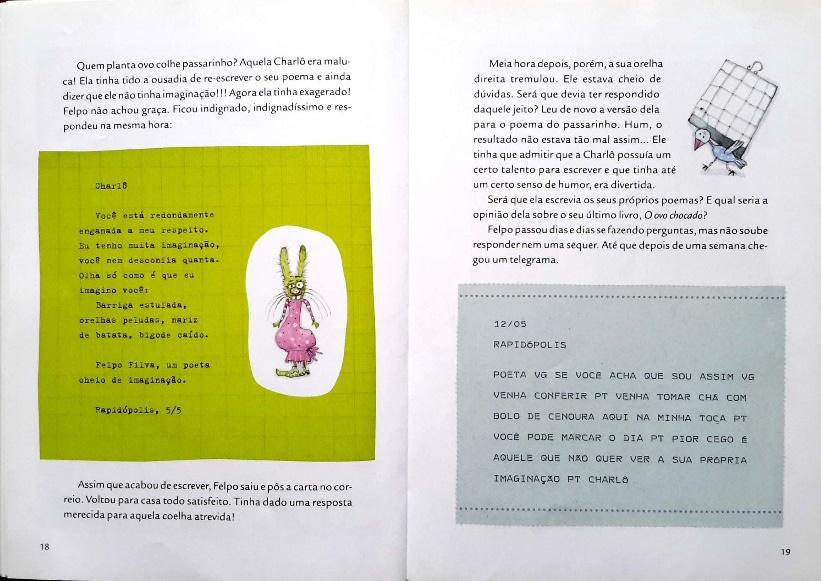 Quem planta ovo colhe passarinho? Aquela Charlô era malu-
ca! Ela tinha tido a ousadia de re-escrever o seu poema e ainda
dizer que ele não tinha imaginação!!! Agora ela tinha exagerado!
Felpo não achou graça. Ficou indignado, indignadíssimo e res-
pondeu na mesma hora:
Charlô
Você está redondamente
enganada a meu respeito.
Eu tenho muita imaginação,
você nem desconfia quanta.
Olha só como é que eu
imagino você:
Barriga estufada,
orelhas peludas, nariz
de batata, bigode caído.
Felpo Filva, um poeta
cheio de imaginação.
Rapidópolis, 5/5
Assim que acabou de escrever, Felpo saiu e pôs a carta no cor-
reio. Voltou para casa todo satisfeito. Tinha dado uma resposta
merecida para aquela coelha atrevida!
18
Meia hora depois, porém, a sua orelha
direita tremulou. Ele estava cheio de
dúvidas. Será que devia ter respondido
daquele jeito? Leu de novo a versão dela
para o poema do passarinho. Hum, o
resultado não estava tão mal assim... Ele
tinha que admitir que a Charlô possuía um
certo talento para escrever e que tinha até
um certo senso de humor, era divertida.
Será que ela escrevia os seus próprios poemas? E qual seria a
opinião dela sobre o seu último livro, O ovo chocado?
Felpo passou dias e dias se fazendo perguntas, mas não soube
responder nem uma sequer. Até que depois de uma semana che-
gou um telegrama.
12/05
RAPIDÓPOLIS
POETA VG SE VOCÊ ACHA QUE SOU ASSIM VG
VENHA CONFERIR PT VENHA TOMAR CHÁ COM
BOLO DE CENOURA AQUI NA MINHA TOCA PT
VOCÊ PODE MARCAR O DIA PT PIOR CEGO É
AQUELE QUE NÃO QUER VER A SUA PRÓPRIA
IMAGINAÇÃO PT CHARLÔ
19